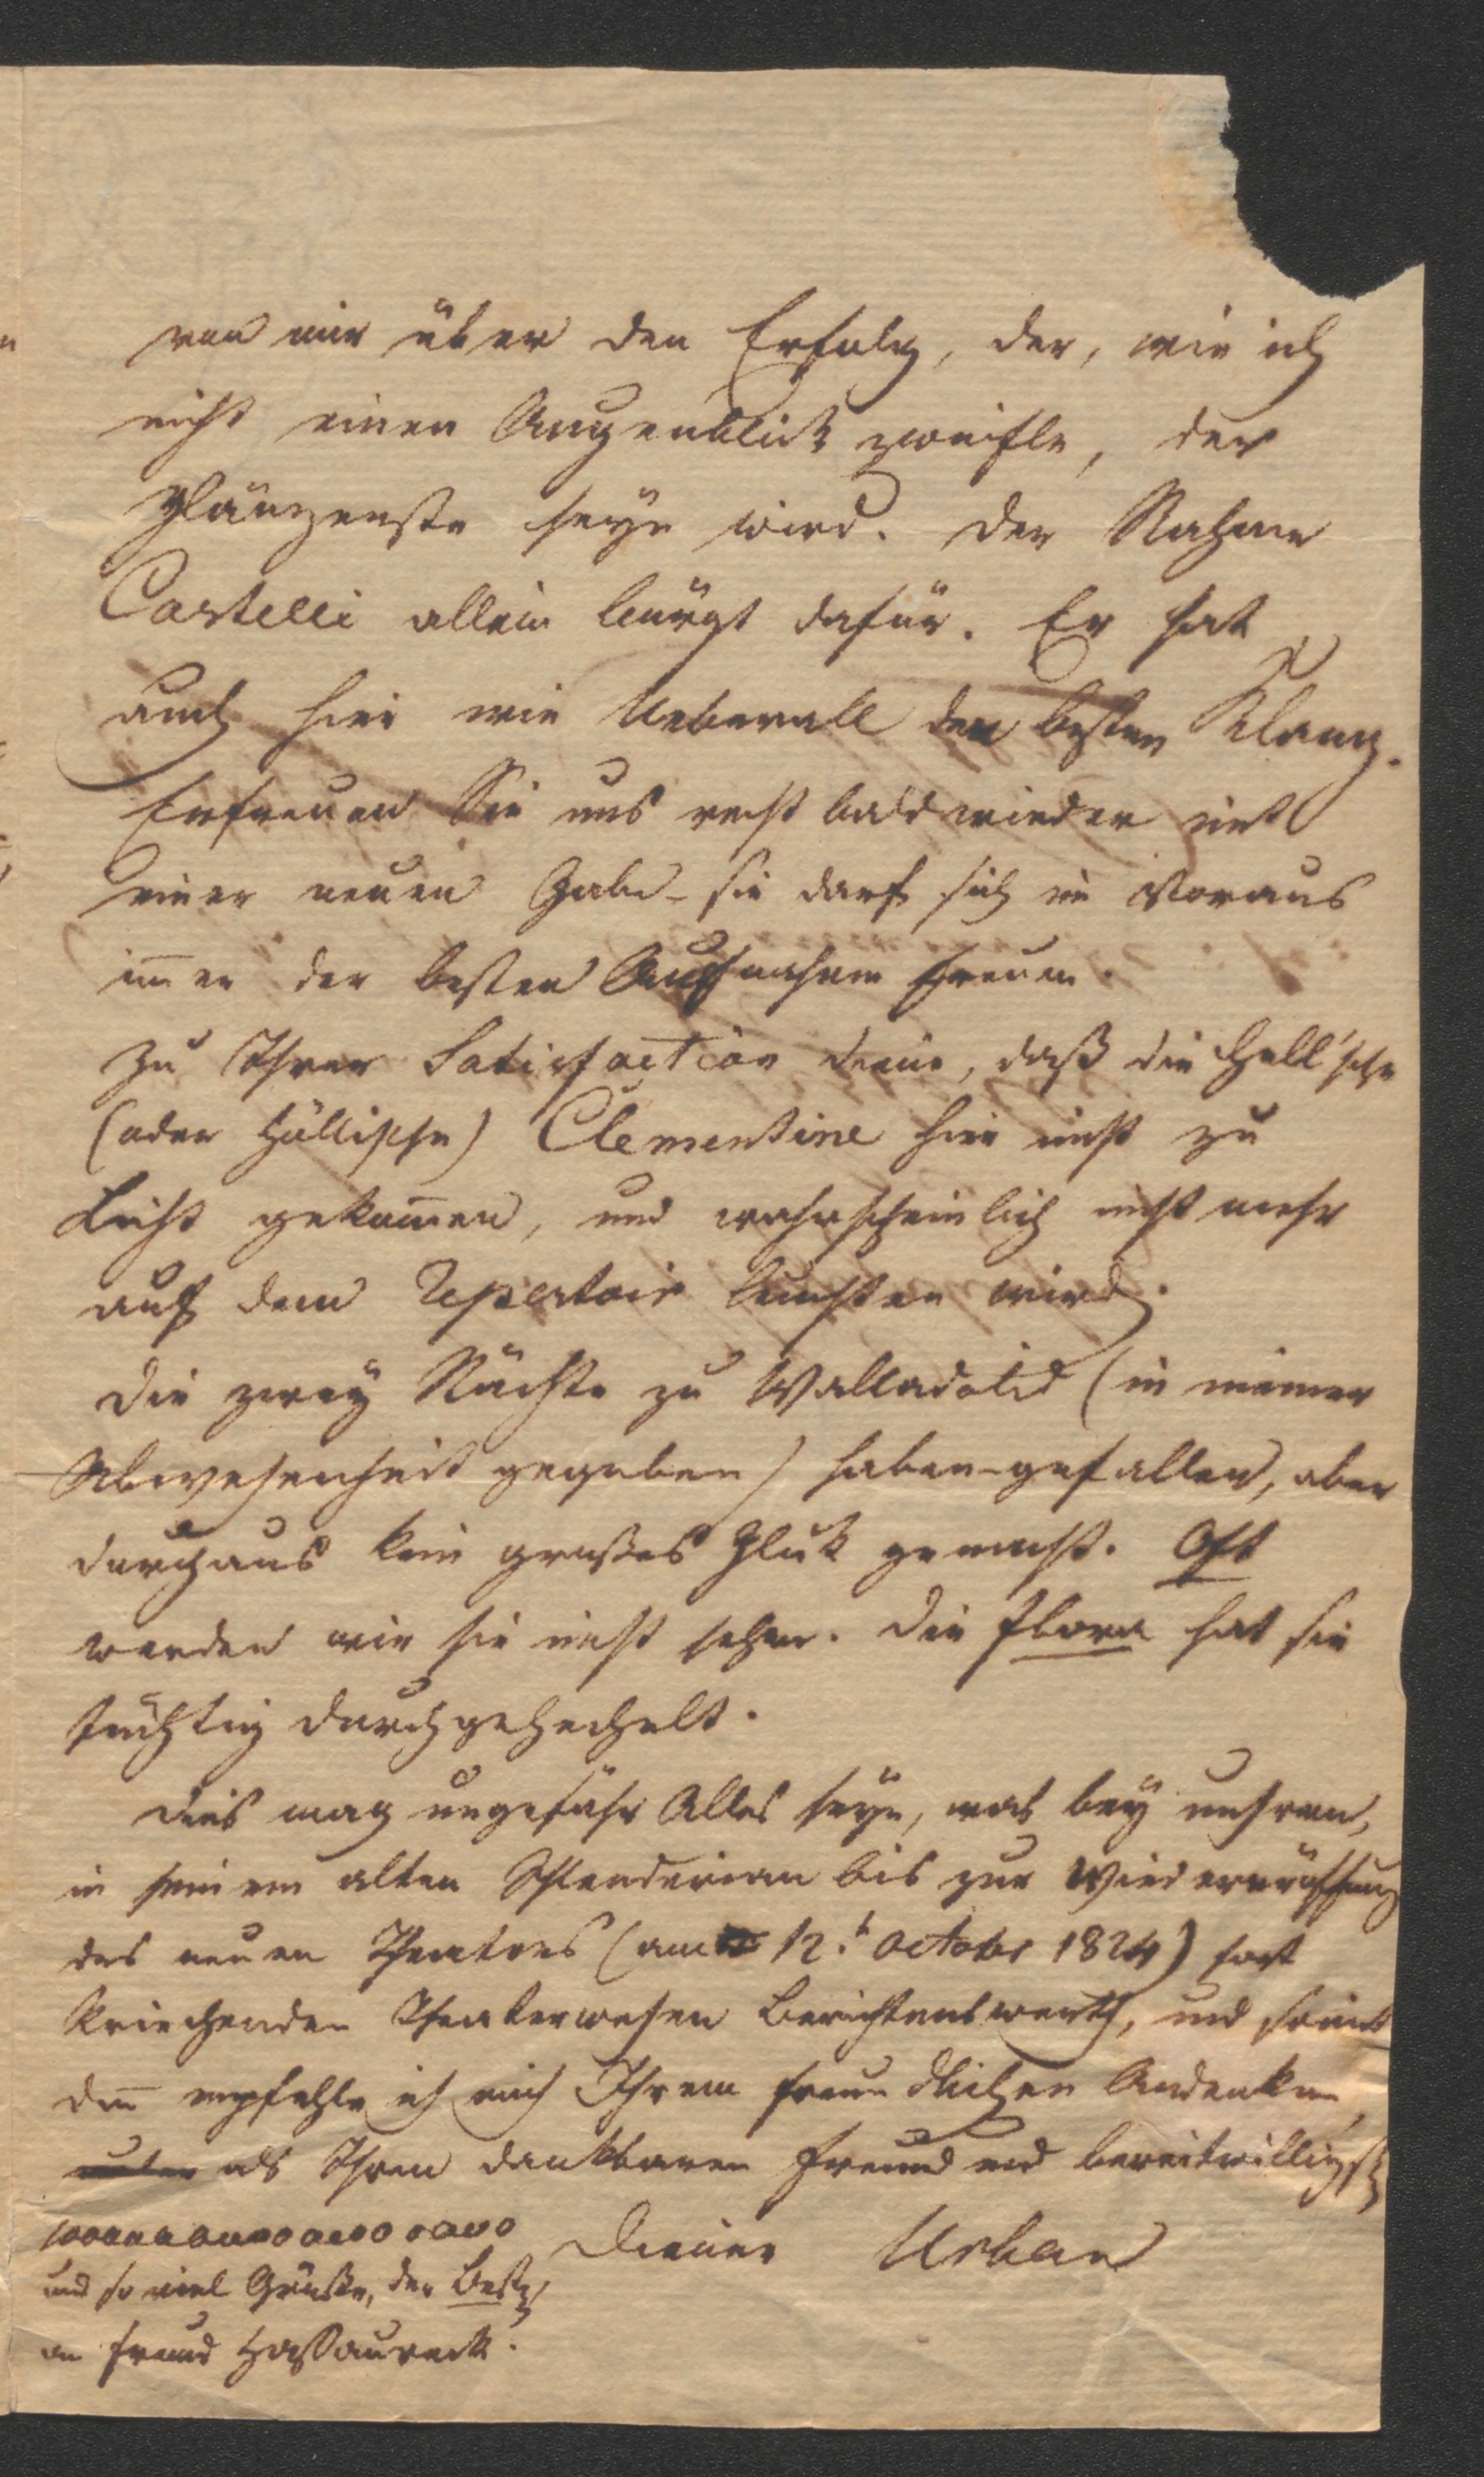 von mir über den Erfolg, der, wie ich
nicht einen Augenblick zweifle, der
glänzenste seyn wird. Der Nahme
Castelli allein bürgt dafür. Er hat
auch hier wie Ueberall den besten Klang.
Erfreuen Sie uns recht bald wieder mit
einer neuen Gabe – sie darf sich im Voraus
im̄er der besten Aufnahme freuen.
Zu Ihrer Satisfaction diene, daß die Hell'sche
(oder Höllische) Clementine hier nicht zu
Licht gekom̄en, und wahrscheinlich nicht mehr
auf dem Repertoir leuchten wird.
Die zwey Nächte zu Walladolid (in meiner
Abwesenheit gegeben) haben gefallen, aber
durchaus kein großes Glük gemacht. Oft
werden wir sie nicht sehen. Die Flora hat sie
tüchtig durchgehechelt.
Dies mag ungefähr Alles seyn, was bey unsrem,
in seinem alten Schlendrian bis zur Wiedereröffnung
des neuen Theatres (am 12. October 1824) fort
kriechenden Theaterwesen Berichtenswerth, und somit
den̄ empfehle ich mich Ihrem freundlichen Andenken,
als Ihren dankbaren Freund und bereitwilligst
Diener Urban
und so viel Grüße, der Best
an Freund Hassaureck.